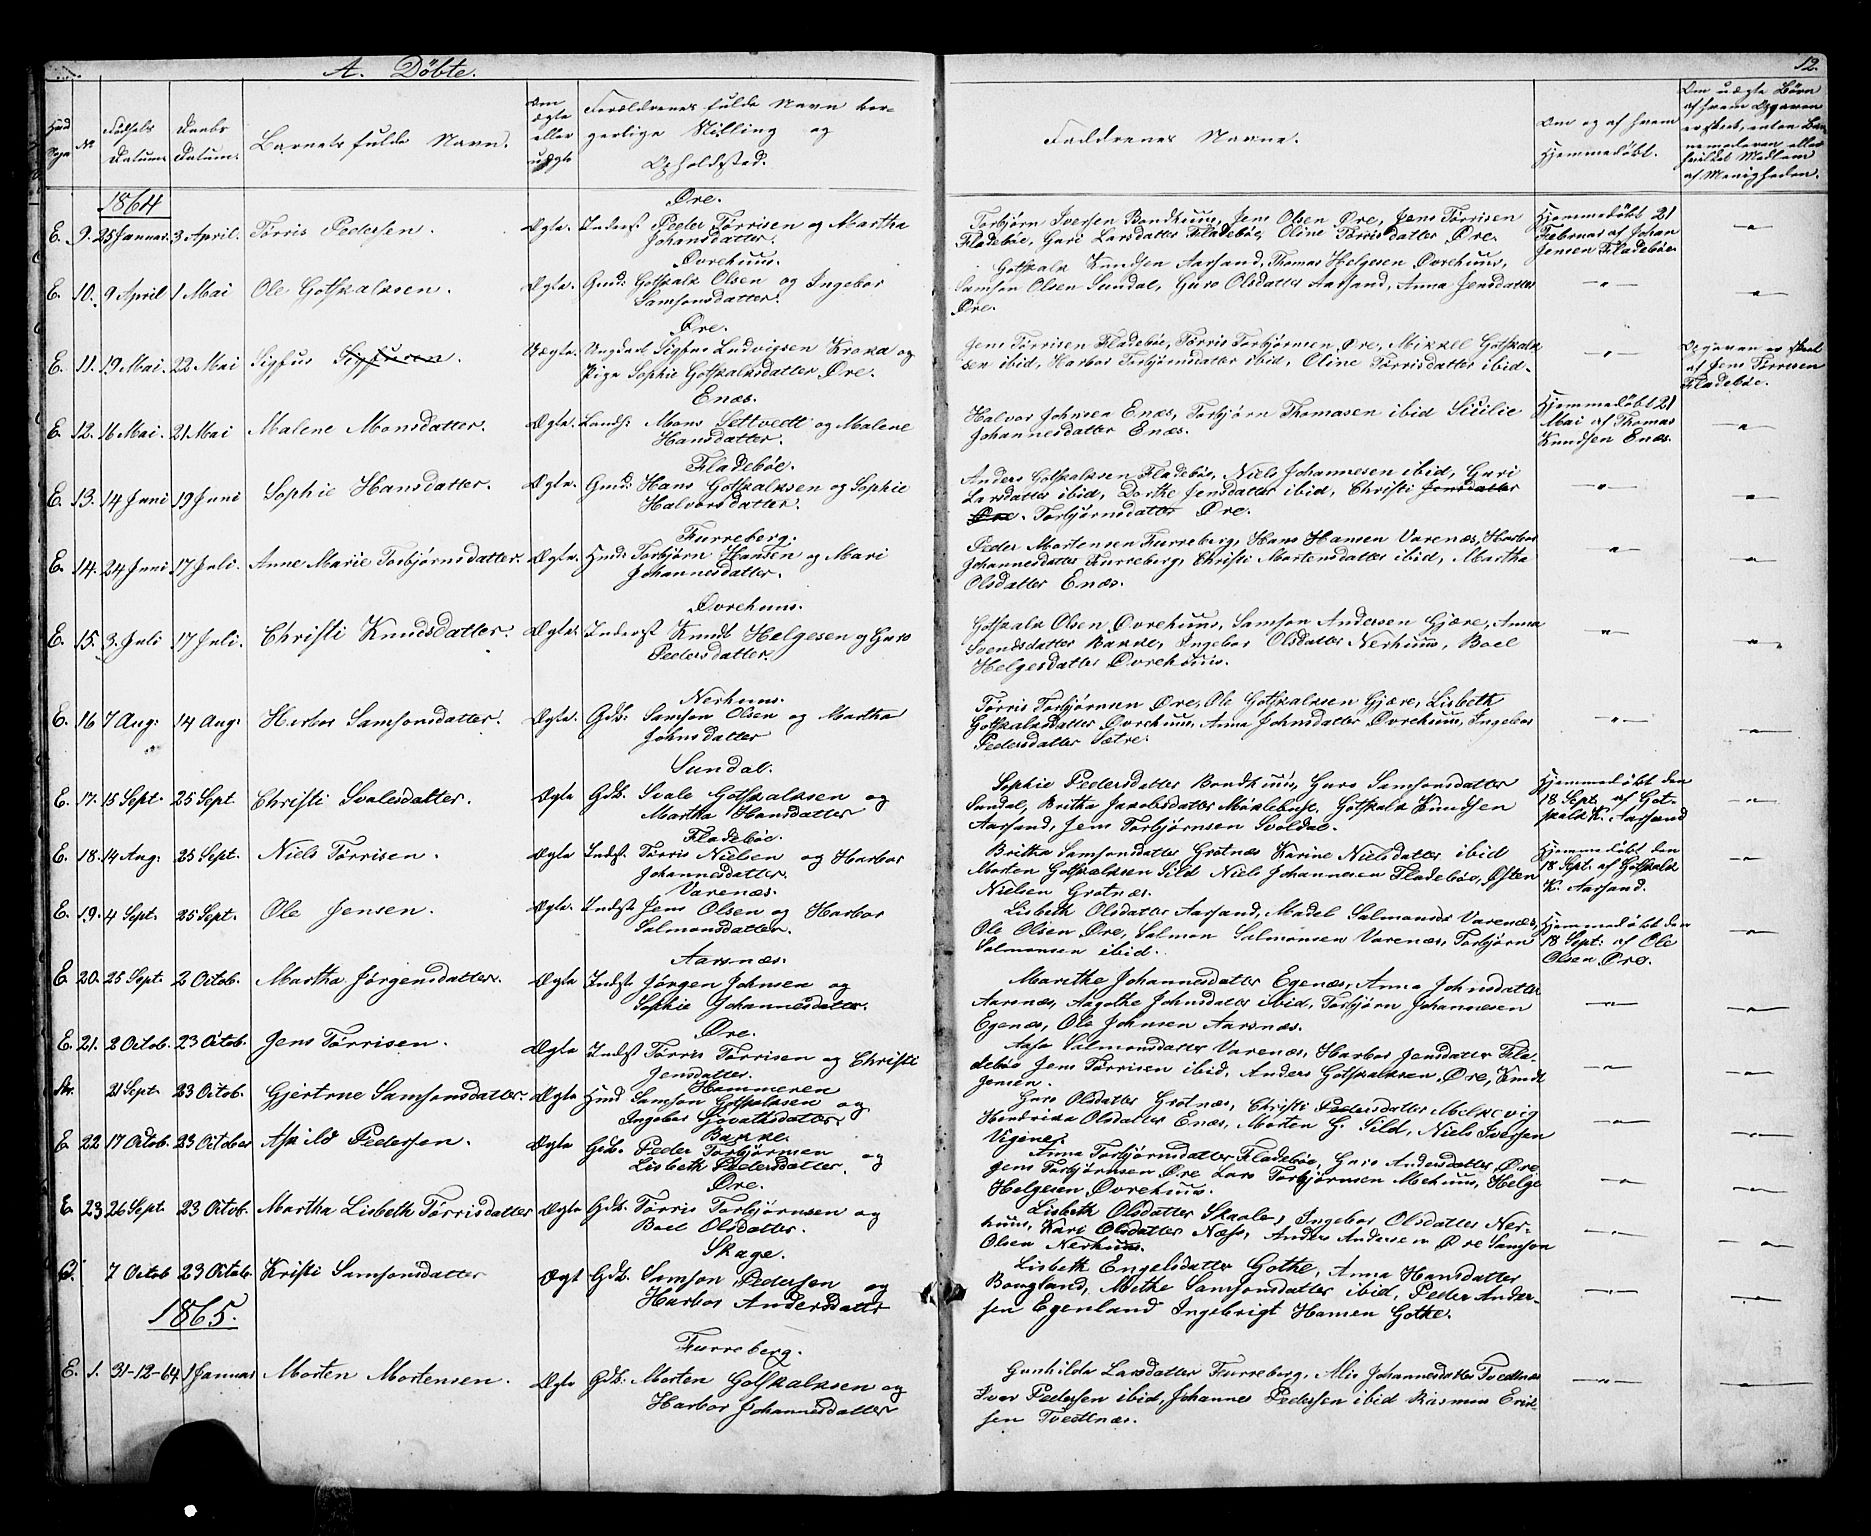 A. Döbte.
12.
No
Fødsels Datum.
Daabs Datum.
Barnets fulde Navn.
Om ægte eller uægte
Forældrenes fulde Navn borgerlige Stilling og Opholdsted.
Faddrenes Navne.
Om og af hvem hjemmedøbt.
1864
Øre.
E. 9. 25 Januar. 3 April. Tørris Pedersen. Ægte. Inderst Peder Tørrisen og Martha
Johansdatter.
Torbjørn Iversen Bondhuus, Jens Olsen Øre, Jens Tørrisen
Fladebøe, Guri Larsdatter Fladebøe, Oline Tørrisdatter Øre.
Hjemmedøbt 21
Februar af Johan
Jensen Fladebøe.
Øvrehuus.
E. 10. 9 April 1 Mai Ole Gotskalksen. Ægte. Gmd: Gotskalk Olsen og Ingebor
Samsonsdatter.
Gotskalk Knudsen Aarsand, Thomas Helgesen Øvrehuus,
Samson Olsen Sundal, Guro Olsdatter Aarsand, Anna Jensdatter
Øre.
Øre.
E. 11. 19 Mai. 22 Mai Sigfus Sigfusen. Uægte. Ungkarl Sigfus Ludvigsen Kroka og
Pige Sophie Gotskalksdatter Øre.
Jens Tørrisen Fladebøe, Tørris Torbjørnsen Øre, Mikkel Gotskalk
sen ibid, Harbor Torbjørnsdatter ibid, Oline Tørrisdatter ibid.
Opgaven er skeet
af Jens Tørrisen
Fladebøe.
Enæs.
E. 12. 16 Mai. 21 Mai Malene Monsdatter. Ægte. Lands: Mons Settvedt og Malene
Hansdatter.
Halvor Johnsen Enæs, Torbjørn Thomasen ibid Sicilie
Johannesdatter Enæs.
Hjemmedøbt 21
Mai af Thomas
Knudsen Enæs.
Fladebøe.
E. 13. 14 Juni 19 Juni Sophie Hansdatter. Ægte. Gmd: Hans Gotskalksen og Sophie
Halvorsdatter.
Anders Gotskalksen Fladebøe, Niels Johannesen ibid, Guri
Larsdatter ibid, Dorthe Jensdatter ibid, Christi Jensdatter
Øre. Torbjørnsdatter Øre.
Furreberg.
E. 14. 24 Juni 17 Juli. Anne Marie Torbjørnsdatter. Ægte. Hmd: Torbjørn Hansen og Mari
Johannesdatter.
Peder Mortensen Furreberg, Hans Hansen Varenæs, Harbor
Johannesdatter Furreberg, Christi Mortensdatter ibid, Martha
Olsdatter Enæs.
Øvrehuus.
E. 15. 3. Juli 17 Juli. Christi Knudsdatter. Ægte. Inderst Knudt Helgesen og Guro
Pedersdatter.
Gotskalk Olsen Øvrehuus, Samson Andersen Gjære, Anna
Svendsdatter Bakke, Ingebor Olsdatter Nerhuus, Boel
Helgesdatter Øvrehuus.
Nerhuus.
E. 16 7 Aug: 14 Aug: Herbor Samsonsdatter. Ægte. Gdb: Samson Olsen og Martha
Johnsdatter
Tørris Torbjørnsen Øre, Ole Gotskalksen Gjære, Lisbeth
Gotskalksdatter Øvrehuus, Anna Johnsdatter Øvrehuus, Ingebor
Pedersdatter Sætre.
Sundal.
E. 17. 15 Sept. 25 Sept. Christi Svalesdatter. Ægte Gdb. Svale Gotskalksen og
Martha Hansdatter
Sophie Pedersdatter Bondhuus, Guro Samsonsdatter
Sundal, Britha Jakobsdatter Møklebust, Gotskalk Knudsen
Aarsand, Jens Torbjørnsen Svoldal.
Hjemmedøbt den
18 Sept. af Got-
skalk K. Aarsand
Fladebøe.
E. 18. 14 Aug: 25 Sept. Niels Tørrisen. Ægte Indst. Tørris Nielsen og Harbor
Johannesdatter.
Britha Samsonsdatter Grotnæs Karine Nielsdatter ibid
Morten Gotskalksen Sild Niels Johannesen Fladebøe, Østen
Nielsen Grotnæs.
Hjemmedøbt den
18 Sept. af Gotskalk
K. Aarsand.
Varenæs.
E. 19. 4 Sept. 25 Sept. Ole Jensen. Ægte. Indst. Jens Olsen og Harbor
Salmonsdatter.
Lisbeth Olsdatter Aarsand, Madel Salmonsd Varenæs,
Ole Olsen Øre, Salmon Salmonsen Varenæs, Torbjørn
Salmonsen ibid.
Hjemmedøbt den
18 Sept: af Ole
Olsen Øre.
Aarsnæs.
E. 20. 25 Sept. 2 Octob. Martha Jørgensdatter. Ægte Indst Jørgen Johnsen og
Sophie Johannesdatter.
Marethe Johannesdatter Egenæs, Anna Johnsdatter
Aarsnæs, Aagothe Johnsdatter ibid, Torbjørn Johannesen
Egenæs, Ole Johnsen Aarsnæs.
Øre.
E. 21. 2 Octob. 23 Octob. Jens Tørrisen. Ægte Indst Tørris Tørrisen og Christi
Jensdatter.
Aasa Salmonsdatter Varenæs, Harbor Jensdatter Fla-
debøe Jens Tørrisen ibid, Anders Gotskalksen Øre, Knudt
Jensen.
Hammeren
21 Sept. 23 Octob. Gjertrue Samsonsdatter. Ægte Hmd Samson Gotskalksen og
Ingebor
Guro Olsdatter Grotnæs, Christi Pedersdatter Melkevig
Hendrika Olsdatter Enæs, Morten G. Sild, Niels Iversen
Bakke.
E. 22 17 Octob. 23 October Askild Pedersen. Ægte Gdb. Peder Torbjørnsen og
Lisbeth Pedersdatter.
Anna Torbjørnsdatter Fladebøe, Guro Andersdatter Øre
Jens Torbjørnsen Øre Lars Torbjørnsen Mehuus, Helge
Helgesen Øvrehuus.
Øre.
E. 23 26 Sept. 23 Octob. Martha Lisbeth Tørrisdatter Ægte Gdb. Tørris Torbjørnsen og
Boel Olsdatter.
Lisbeth Olsdatter Skaale, Ingebor Olsdatter Ner-
huus, Kari Olsdatter Næss, Anders Andersen Øre Samson
Olsen Nerhuus.
Skage.
7 Octob 23 Octob. Kristi Samsonsdatter Ægt Gdb. Samson Pedersen og
Harbor Andersdatter
Lisbeth Engelsdatter Gothe, Anna Hansdatter
Bougland, Methe Samsonsdatter ibid, Peder Ander-
sen Egenland Ingebrigt Hansen Gothe.
1865.
Furreberg.
E. 1. 31-12-64 1 Januar Morten Mortensen. Ægte Gdb. Morten Gotskalksen og
Harbor Johannesdatter
Gunhilde Larsdatter Furreberg, Alis Johannesdatter Tvedtnæs
Iver Pedersen ibid, Johannes Pedersen ibid Rasmus Erik-
sen Tvedtnæs.